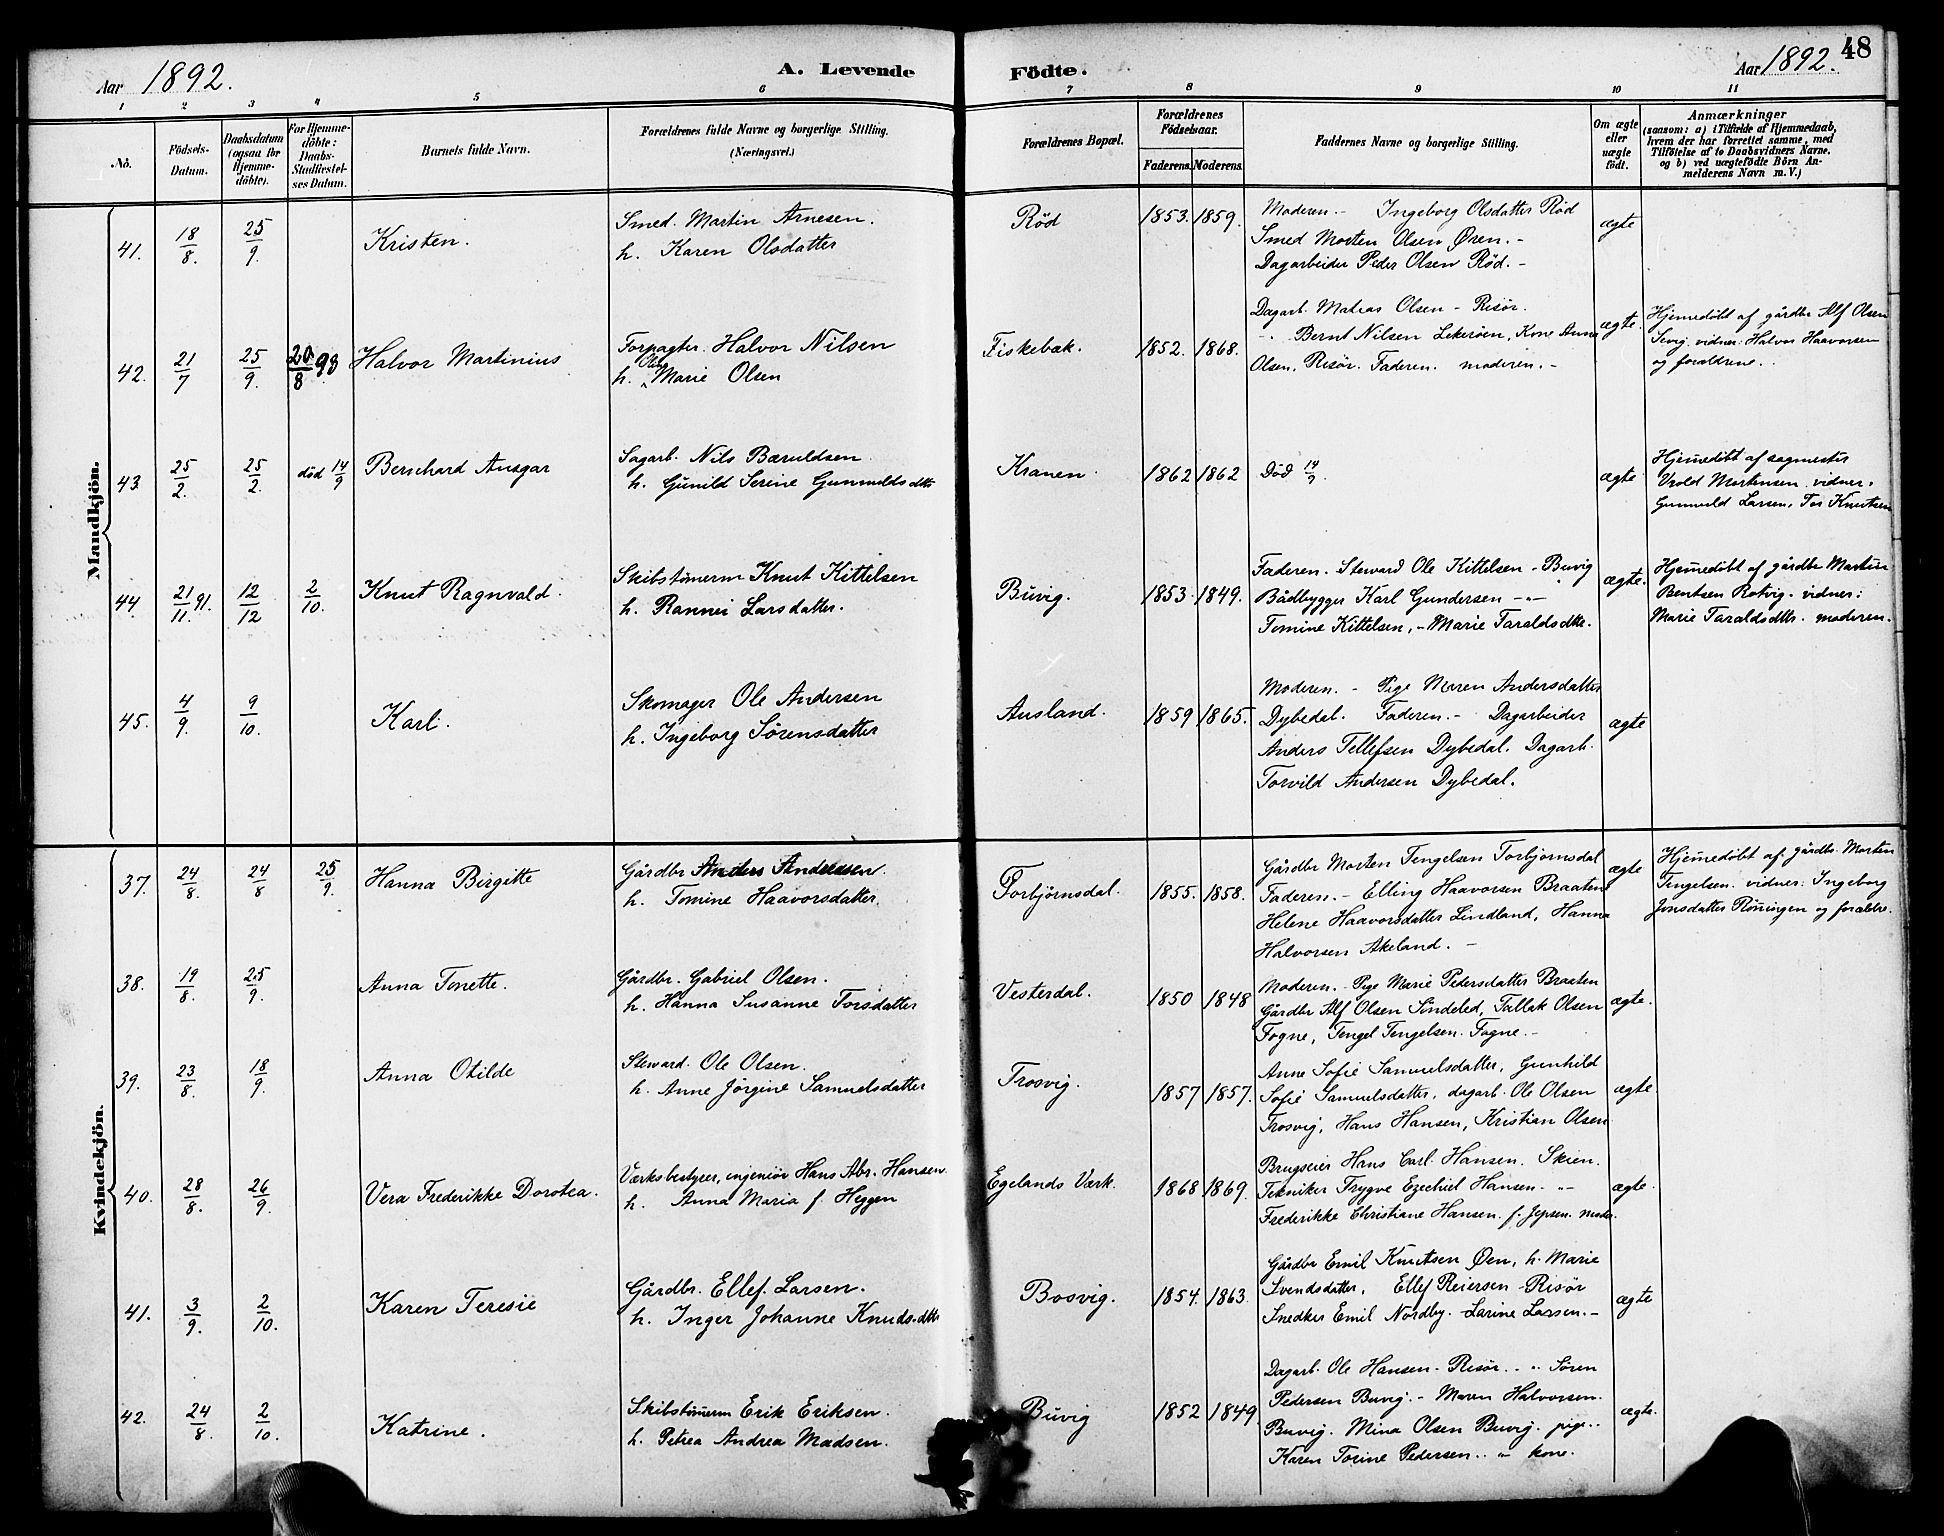 48
Aar 1892. A. Levende Födte. Aar 1892.
1 2 3 4 5 6 7 8 9 10 11
No.
Födsels-
Datum.
Daabsdatum
(ogsaa for
Hjemme-
döbte).
For Hjemme-
döbte:
Daabs-
Stadfæstel-
ses Datum.
Barnets fulde Navn.
Forældrenes fulde Navne og borgerlige Stilling.
(Næringsvei.)
Forældrenes Bopæl.
Forældrenes
Födselsaar.
Faderens. Moderens.
Faddernes Navne og borgerlige Stilling.
Om ægte
eller
uægte
födt.
Anmærkninger
(saasom: a) i Tilfælde af Hjemmedaab,
hvem der har forrettet samme, med
Tilföielse af to Daabsvidners Navne,
og b) ved uægtefödte Börn An-
melderens Navn m.V.)
Mandkjön.
41. 18/8. 25/9. Kristen.
Smed. Martin Arnesen.
h. Karen Olsdatter
Röd 1853. 1859.
Moderen. - Ingeborg Olsdatter Röd
Smed Morten Olsen Øren. -
Dagarbeider Peder Olsen Röd. -
ægte
42. 21/7 25/9. 20/8 93 Halvor Martinius
Forpagter. Halvor Nilsen
h. Olava Marie Olsen
Fiskebæk. 1852. 1868.
Dagarb. Matias Olsen - Risør.
". Bernt Nilsen Lekerøen, Kone Anna
Olsen, Risør. Faderen. moderen. -
ægte.
Hjemedøbt af gårdbr Alf Olsen
Sevig. vidner. Halvor Haavorsen
og forældrene.
43. 25/2. 25/2. död 14/9 Bernhard Ansgar
Sagarb. Nils Bæruldsen
h. Gunild Serine Gunnuldsdtr
Kranen. 1862 1862
Död 14/9.
ægte
Hjemedøbt af sagmester
Vrold Mortensen. vidner.
Gunnuld Larsen, Tor Knutsen
44. 21/11. 91. 12/12 2/10. Knut Ragnvald.
Skibstömerm Knut Kittelsen
h. Rannei Larsdatter.
Buvig. 1853. 1849.
Faderen. Steward Ole Kittelsen - Buvig
Bådbygger Karl Gundersen - " -
Tomine Kittelsen, - Marie Taraldsdtr.
ægte.
Hjemedøbt af gårdbr Martin
Bentsen Rotvig. vidner:
Marie Taraldsdtr. moderen.
45. 4/9. 9/10. Karl.
Skomager Ole Andersen
h. Ingeborg Sörensdatter
Ausland. 1859 1865.
Moderen. - Pige Maren Andersdatter
Dybedal. Faderen. - Dagarbeider
Anders Tellefsen Dybedal. Dagarb.
Torvild Andersen Dybedal.
ægte
Kvindekjön.
37. 24/8. 24/8 25/9. Hanna Birgitte
Gårdbr Anders Andersen.
h. Tomine Haavorsdatter.
Torbjørnsdal. 1855. 1858.
Gårdbr Morten Tengelsen Torbjornsdal
Faderen. - Elling Haavorsen Braatene
Helene Haavorsdatter Lindland, Hanna
Halvorsen Akeland. -
ægte
Hjemedøbt af gårdbr. Morten
Tengelsen. vidner: Ingeborg
Jonsdatter Röningen og forældre.
38. 19/8. 25/9. Anna Tonette.
Gårdbr. Gabriel Olsen.
h. Hanna Susanne Torsdatter
Vesterdal. 1850 1848
Moderen. - Pige Marie Pedersdatter Braaten
Gårdbr Alf Olsen Søndeled, Tallak Olsen
Fogne, Tengel Tengelsen. Fogne. -
ægte.
39. 23/8. 18/9. Anna Otilde
Steward. Ole Olsen.
h. Anne Jörgine Samuelsdatter
Trosvig. 1857 1857.
Anne Sofie Samuelsdatter, Gunhild
Sofie Samuelsdatter, dagarb. Ole Olsen
Trosvig, Hans Hansen, Kristian Olsen
ægte.
40. 28/8. 26/9. Vera Frederikke Dorotea.
Værksbestyrer, ingeniör Hans Abr. Hansen.
h. Anna Maria f. Heggen
Egelands Værk. 1868 1869.
Brugseier Hans Carl Hansen. Skien.
Tekniker Trygve Ezechiel Hansen. - " -
Frederikke Christiane Hansen. f. Jepsen. moder.
ægte.
41. 3/9. 2/10. Karen Teresie
Gårdbr. Ellef. Larsen.
h. Inger Johanne Knudsdtr
Bosvig. 1854. 1863.
Gårdbr Emil Knutsen Øen, h. Marie
Svendsdatter, Ellef Reiersen - Risør
Snedker Emil Nordby. - Larine Larsen. -
ægte
42. 24/8. 2/10. Katrine.
Skibstömerm Erik Eriksen.
h. Petrea Andrea Madsen.
Buvig 1852 1849
Dagarb. Ole Hansen. Risør. - ". Sören
Pedersen Buvig. - Maren Halvorsen.
Buvig. Mina Olsen Buvig. pige..
Karen Torine Pedersen.. " kone.
ægte.